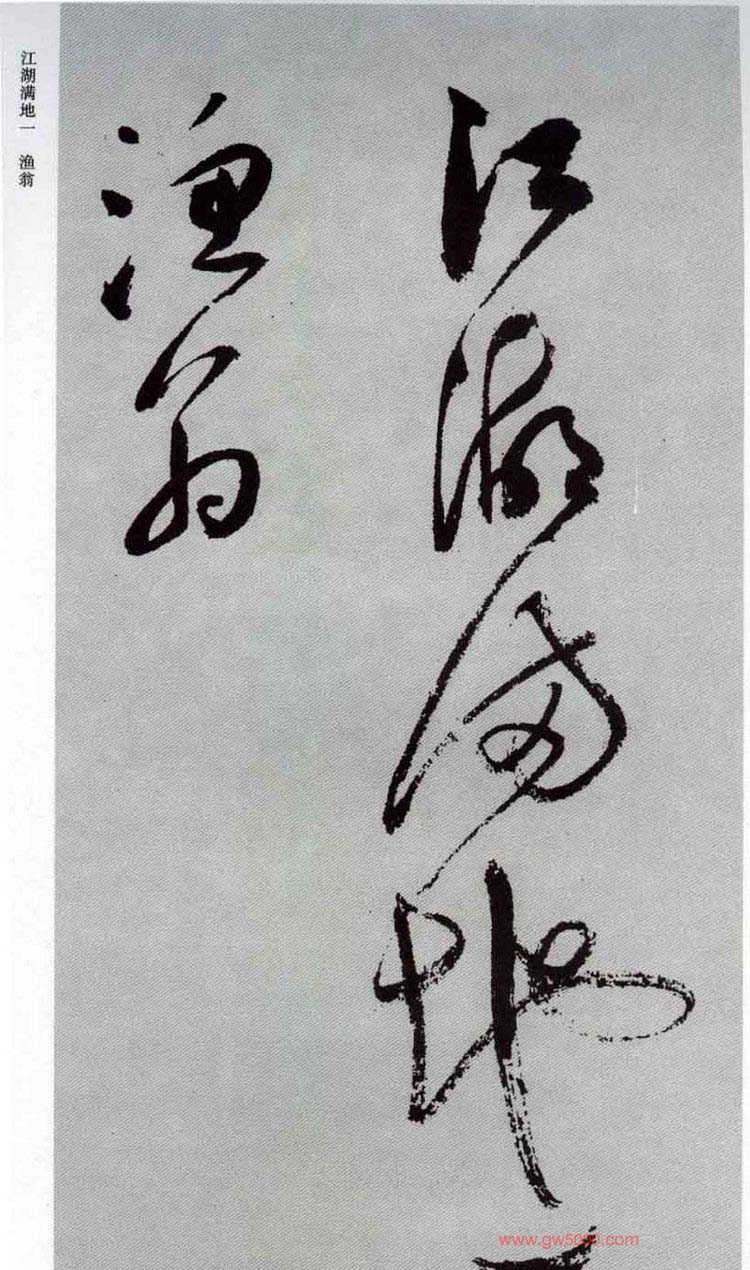 江湖满地一 渔翁
江湖满地一
渔翁
www.gw5000.com